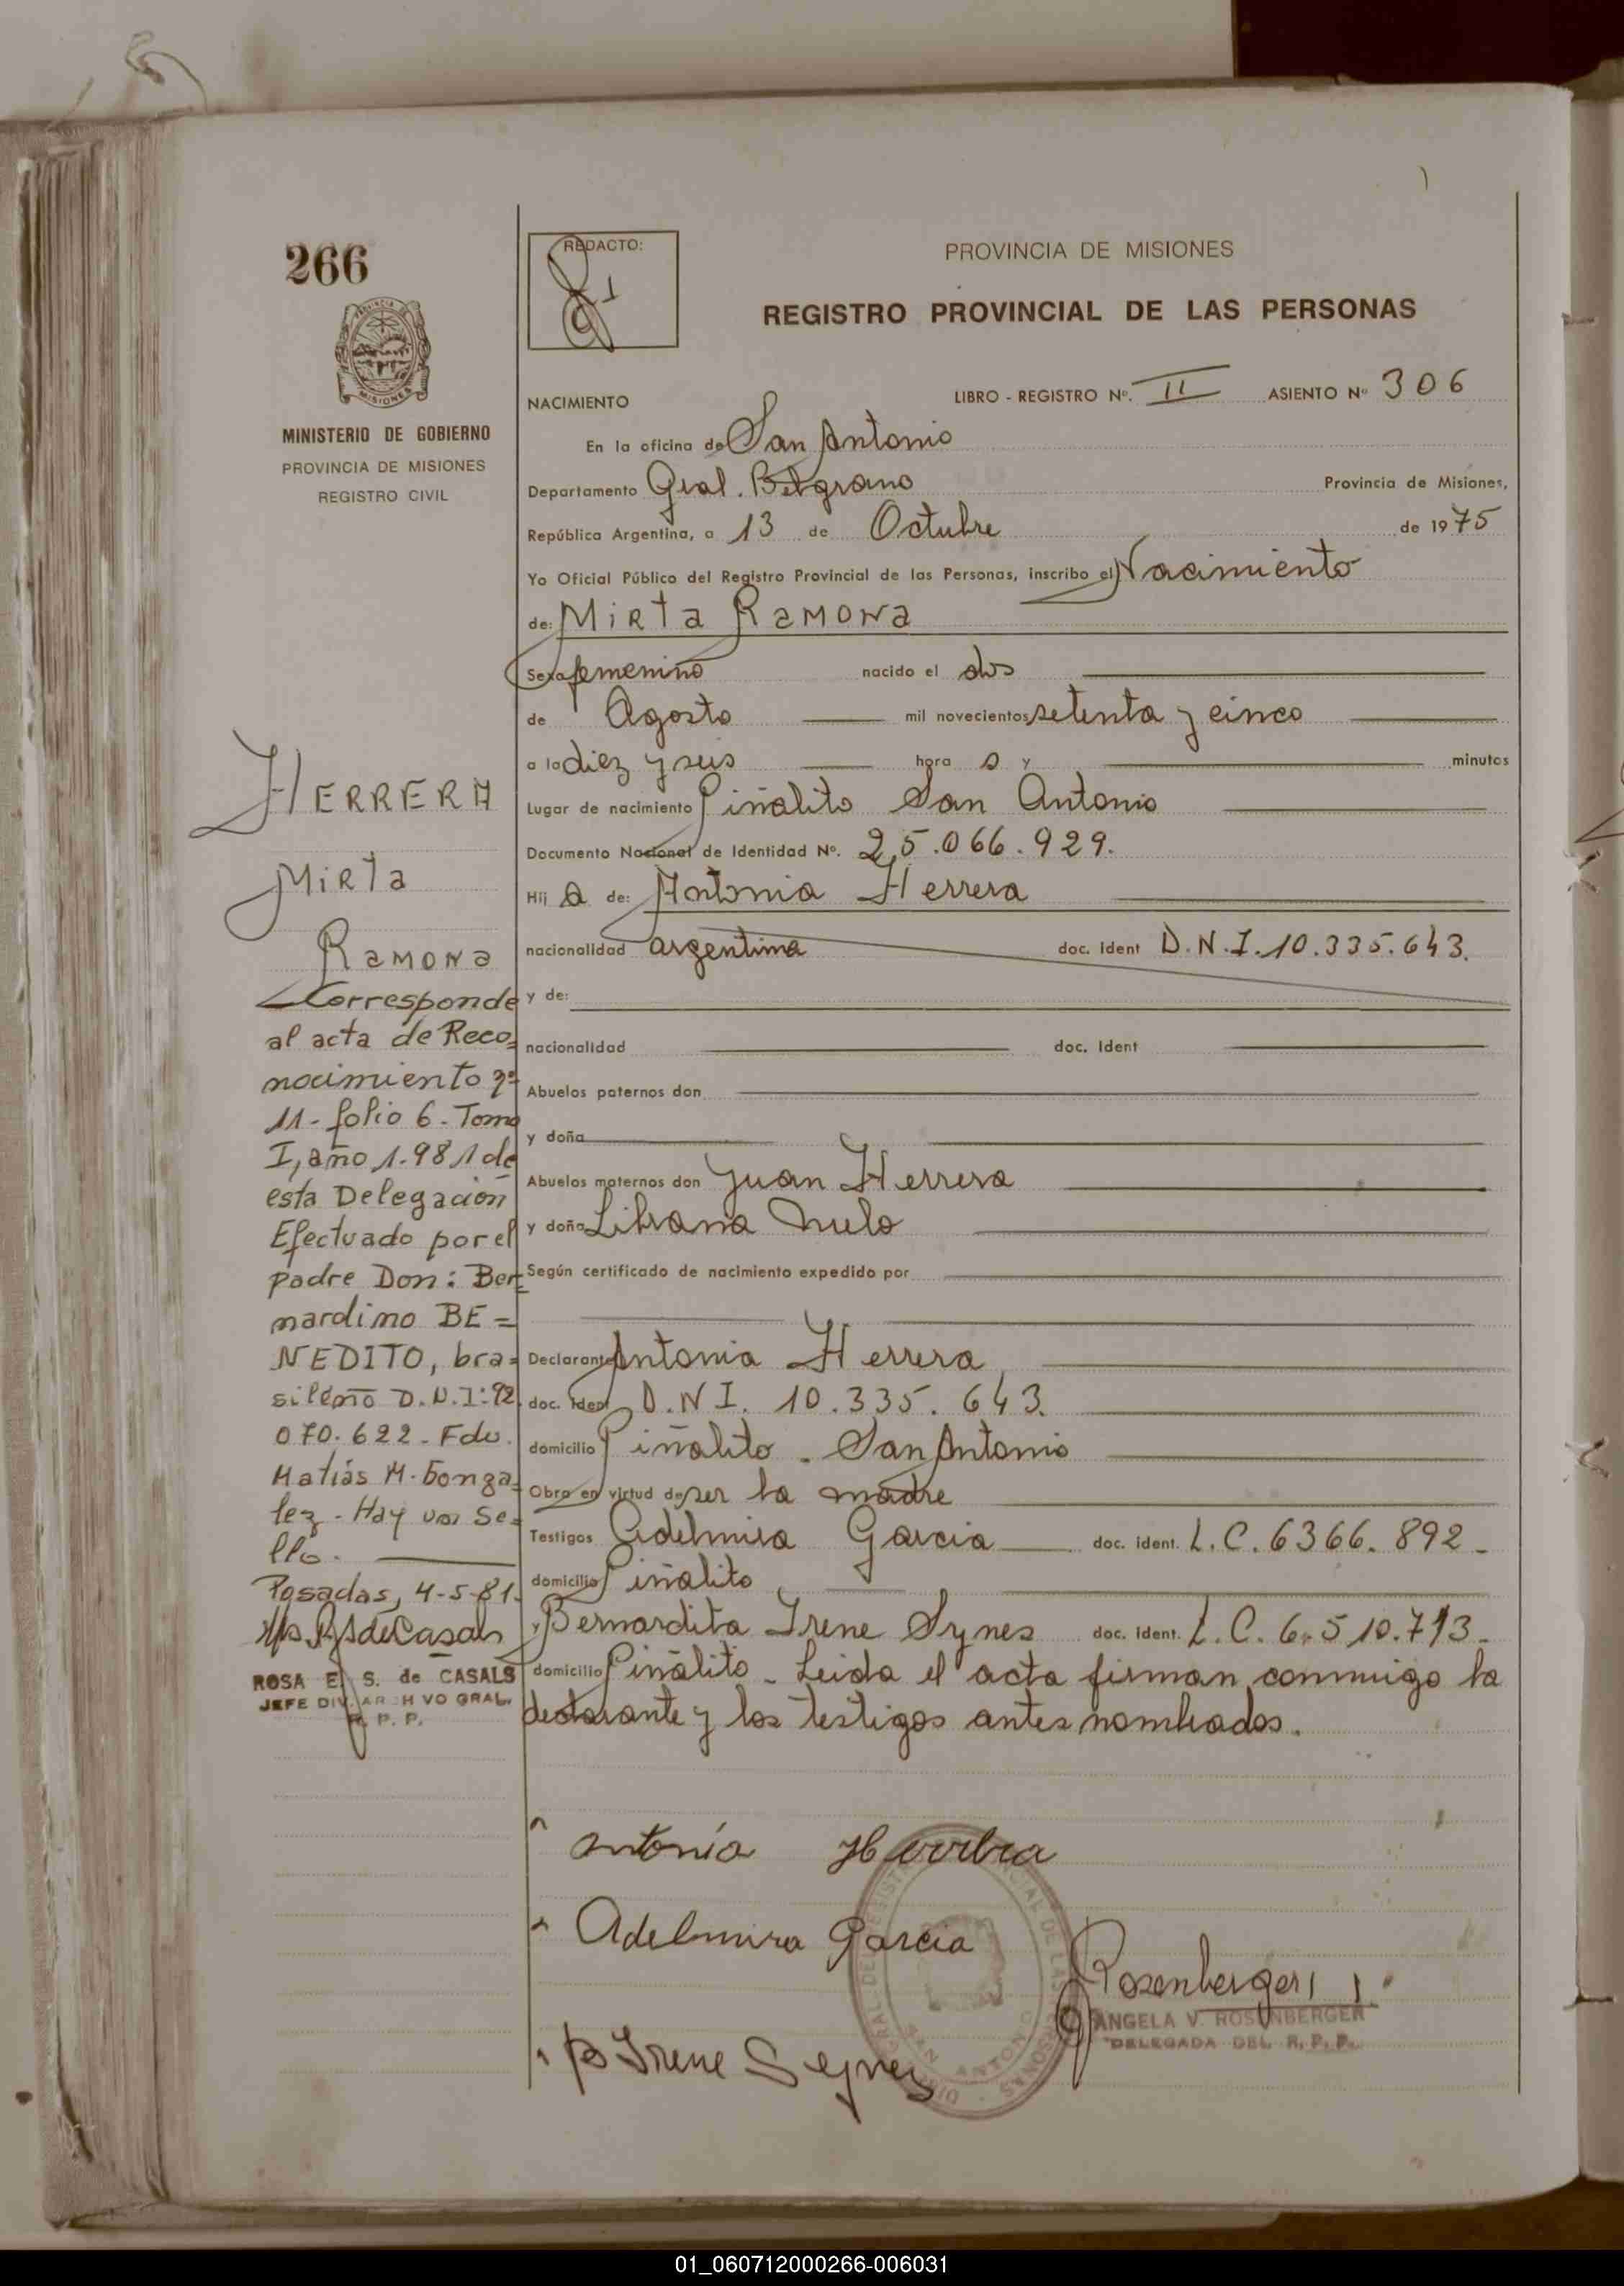 266
MINISTERIO DE GOBIERNO
PROVINCIA DE MISIONES
REGISTRO CIVIL
REDACTO:
PROVINCIA DE MISIONES
REGISTRO PROVINCIAL DE LAS PERSONAS
NACIMIENTO
LIBRO - REGISTRO Nº. II ASIENTO Nº 306
En la oficina de San Antonio
Departamento Gral. Belgrano Provincia de Misiones,
República Argentina, a 13 de Octubre de 1975
Yo Oficial Público del Registro Provincial de las Personas, inscribo el Nacimiento
de: Mirta Ramona
Sexo femenino nacido el dos
de Agosto mil novecientos setenta y cinco
a la diez y seis hora s y minutos
Lugar de nacimiento Piñalito San Antonio
Documento Nacional de Identidad Nº. 25.066.929.
Hij a de: Antonia Herrera
nacionalidad argentina doc. Ident D.N.I. 10.335.643.
y de:
nacionalidad doc. Ident
Abuelos paternos don
y doña
Abuelos maternos don Juan Herrera
y doña Librana Melo
Según certificado de nacimiento expedido por
Declarante Antonia Herrera
doc. Ident D.N.I. 10.335.643.
domicilio Piñalito - San Antonio
Obra en virtud de ser la madre
Testigos Adelmira Garcia doc. ident. L.C. 6366.892-
domicilio Piñalito
y Bernardita Irene Synes doc. ident. L.C. 6.510.713-
domicilio Piñalito - Leida el acta firman conmigo la
declarante y los testigos antes nombrados.
HERRERA
Mirta
Ramona
Corresponde
al acta de Reco=
nocimiento nº
11- folio 6- Tomo
I, año 1.981 de
esta Delegación
Efectuado por el
padre Don: Ber=
nardino BE=
NEDITO, bra=
sileño D.N.I: 92.
070.622- Fdo.
Matiás M. Gonza=
lez - Hay un Se=
llo.
Posadas, 4-5-81.
ROSA E. S. de CASALS
JEFE DIV. ARCHIVO GRAL.
R. P. P.
Antonia Herrera
Adelmira Garcia
B Irene Seynes
Rosenberger
ANGELA V. ROSENBERGER
DELEGADA DEL R.P.P.
SAN ANTONIO
01_060712000266-006031